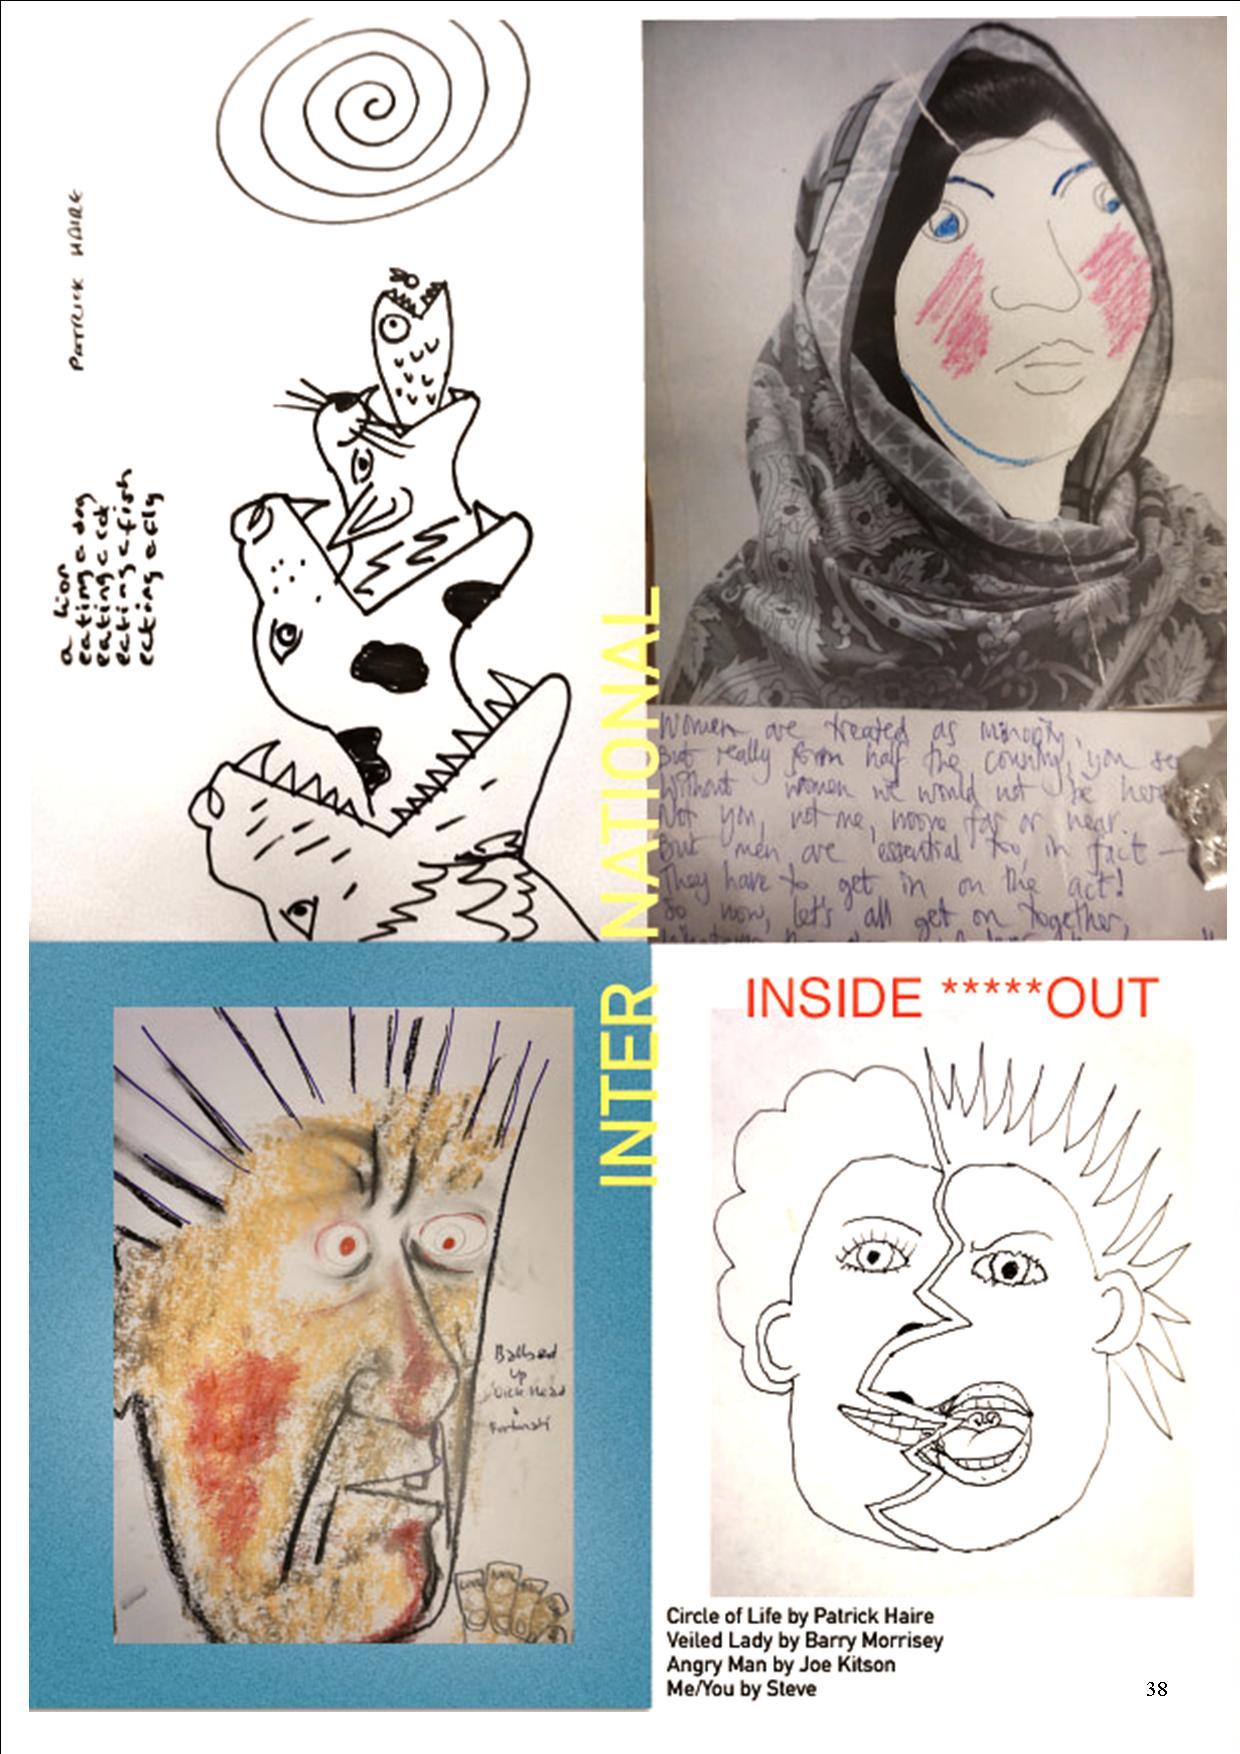 PATRICK HAIRE
a lion
eating a dog
eating a cat
eating a fish
eating a fly
INTER NATIONAL
Women are treated as minority,
But really form half the country, you see
Without women we would not be here
Not you, not me, noone far or near.
But men are essential too, in fact —
They have to get in on the act!
So now, let's all get on together,
INSIDE *****OUT
Ballsed
Up
Dick Head
Circle of Life by Patrick Haire
Veiled Lady by Barry Morrisey
Angry Man by Joe Kitson
Me/You by Steve
38